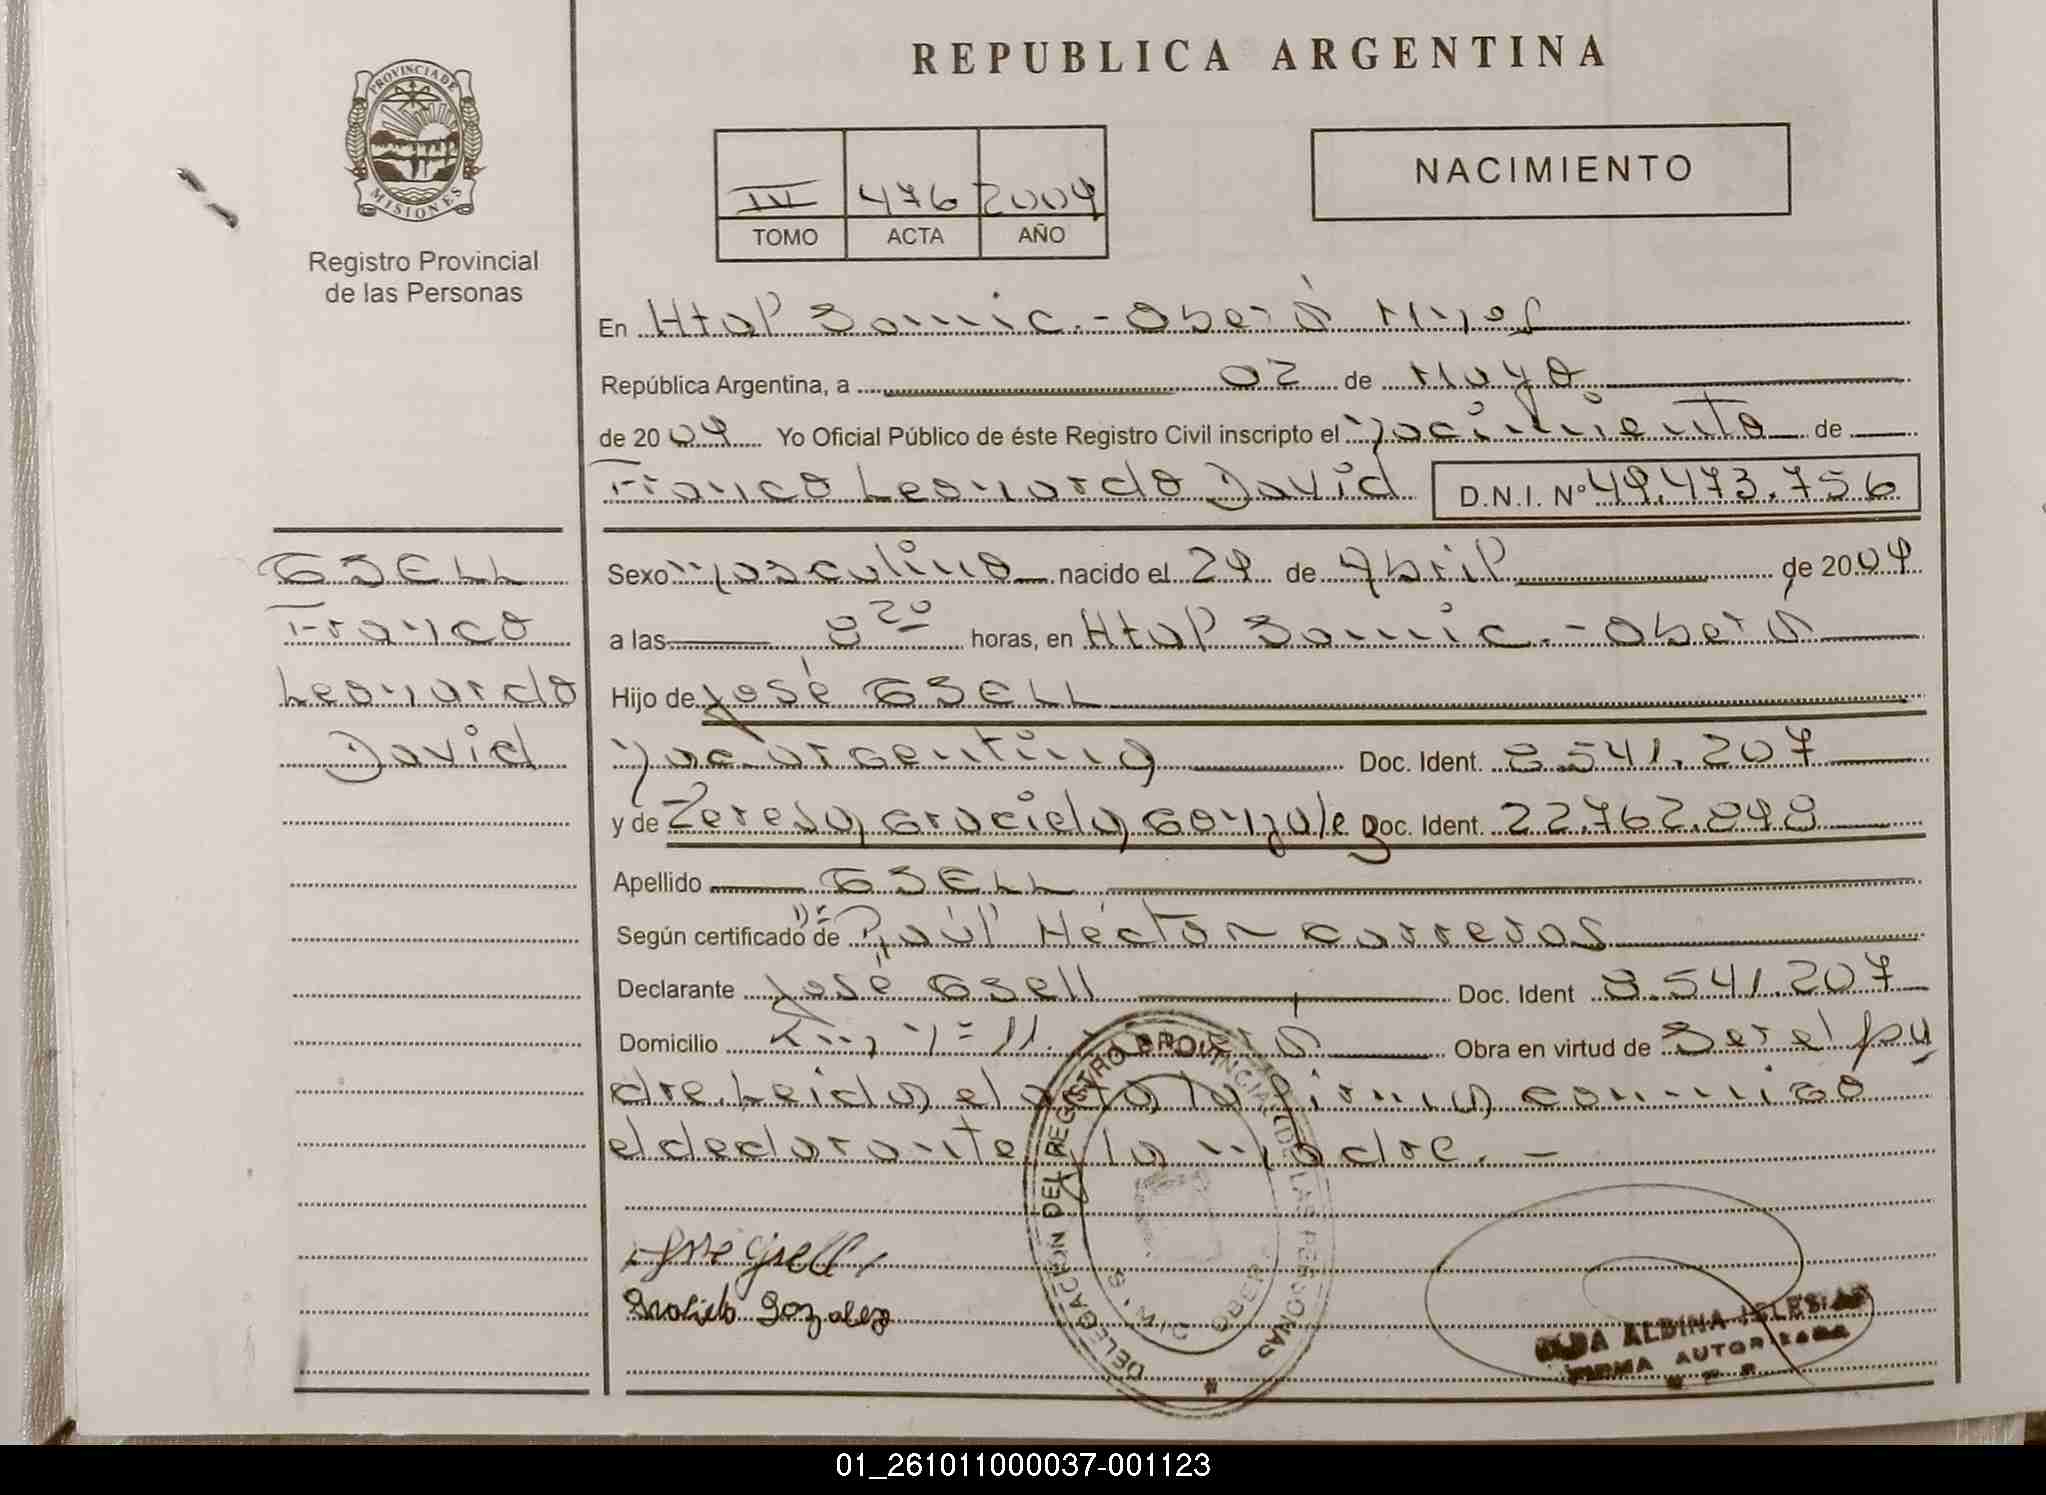 PROVINCIA DE
MISIONES
Registro Provincial
de las Personas
REPUBLICA ARGENTINA
III 476 2009
TOMO ACTA AÑO
NACIMIENTO
En Htal Samic.- Oberá Mnes
República Argentina, a 02 de Mayo
de 2009 Yo Oficial Público de éste Registro Civil inscripto el nacimiento de
Franco Leonardo David D.N.I. Nº 49.473.756
GSELL
Franco
Leonardo
David
Sexo masculino nacido el 29 de Abril de 2009
a las 8 20 horas, en Htal Samic.- Oberá
Hijo de José GSELL
nac. argentina Doc. Ident. 8.541.207
y de Teresa Graciela Gonzalez Doc. Ident. 22.762.848
Apellido GSELL
Según certificado de Raúl Héctor Carreras
Declarante José Gsell Doc. Ident 8.541.207
Domicilio Km. 11. Oberá Obra en virtud de ser el pa
dre. Leida el acta la firma conmigo
el declarante y la madre.-
José Gsell
Graciela Gozalez
DELEGACION DEL REGISTRO PROVINCIAL DE LAS PERSONAS
OBERA
ALBINA IGLESIAS
FIRMA AUTORIZADA
01_261011000037-001123